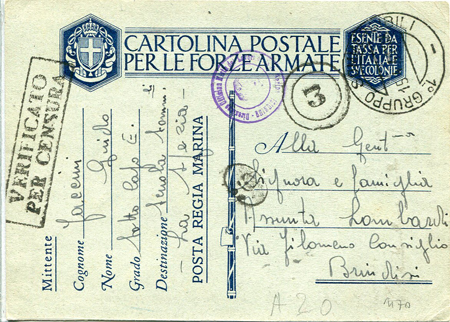 CARTOLINA POSTALE
PER LE FORZE ARMATE
ESENTE DA
TASSA PER
L'ITALIA E
SUE COLONIE
VERIFICATO
PER CENSURA
1° GRUPPO
3
Mittente
Cognome
Nome Guido
Grado Sotto Capo
Destinazione Scuola
La Spezia
POSTA REGIA MARINA
Alla Gent
Signora e famiglia
Assunta Lombardi
Via Filomeno Consiglio
Brindisi
A 20
1170